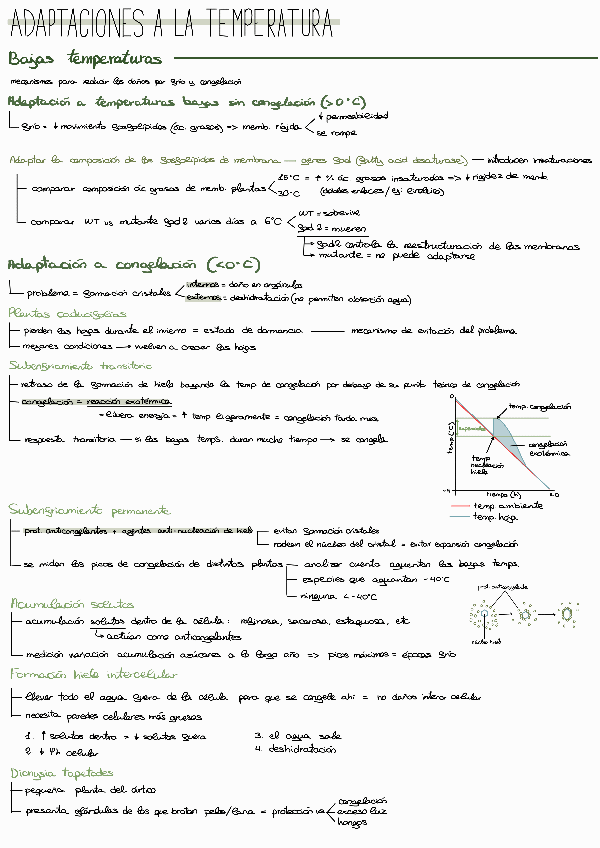 ADAPTACIONES A LA TEMPERATURA
Bajas temperaturas
mecanismos para reducir los daños por frío y congelación
Adaptación a temperaturas bajas sin congelación (>0°C)
frío = ↓ movimiento fosfolípidos (ác. grasos) => memb. rígida
↓ permeabilidad
se rompe
Adaptar la composición de los fosfolípidos de membrana — genes fad (fatty acid desaturase) — introducen insaturaciones
comparar composición ác grasos de memb. plantas
15°C = ↑ % ác grasos insaturados => ↓ rigidez de memb.
30°C (dobles enlaces/ej: erolico)
comparar WT vs mutante fad 2 varios días a 6°C
WT = sobrevive
fad 2 = mueren
fad2 controla la reestructuración de las membranas
mutante = no puede adaptarse
Adaptación a congelación (<0°C)
problema = formación cristales
internos = daño en orgánulos
externos = deshidratación (no permiten absorción agua)
Plantas caducifolias
pierden las hojas durante el invierno = estado de dormancia — mecanismo de evitación del problema
mejores condiciones → vuelven a crecer las hojas
Subenfriamiento transitorio
retraso de la formación de hielo bajando la temp de congelación por debajo de su punto teórico de congelación
congelación = reacción exotérmica
= libera energía = ↑ temp ligeramente = congelación tarda más
respuesta transitoria — si las bajas temps. duran mucho tiempo → se congela
temp. congelación
congelación exotérmica
temp nucleación hielo
temp (°C)
tiempo (h)
temp ambiente
temp. hoja
Subenfriamiento permanente
prot. anticongelantes + agentes anti nucleación de hielo
evitan formación cristales
rodean el núcleo del cristal = evitar expansión congelación
se miden los picos de congelación de distintas plantas
analizar cuánto aguantan las bajas temps.
especies que aguantan -40°C
ninguna < -40°C
Acumulación solutos
acumulación solutos dentro de la célula: rafinosa, sacarosa, estaquiosa, etc
actúan como anticongelantes
medición variación acumulación azúcares a lo largo año => picos máximos = épocas frío
prot. anticongelante
núcleo hielo
Formación hielo intercelular
llevar todo el agua fuera de la célula para que se congele ahí = no daños intracelular
necesita paredes celulares más gruesas
1. ↑ solutos dentro > ↓ solutos fuera
2. ↓ Ψh celular
3. el agua sale
4. deshidratación
Dionysia tapetodes
pequeña planta del ártico
presenta glándulas de las que brotan pelo/lana = protección vs
congelación
exceso luz
hongos